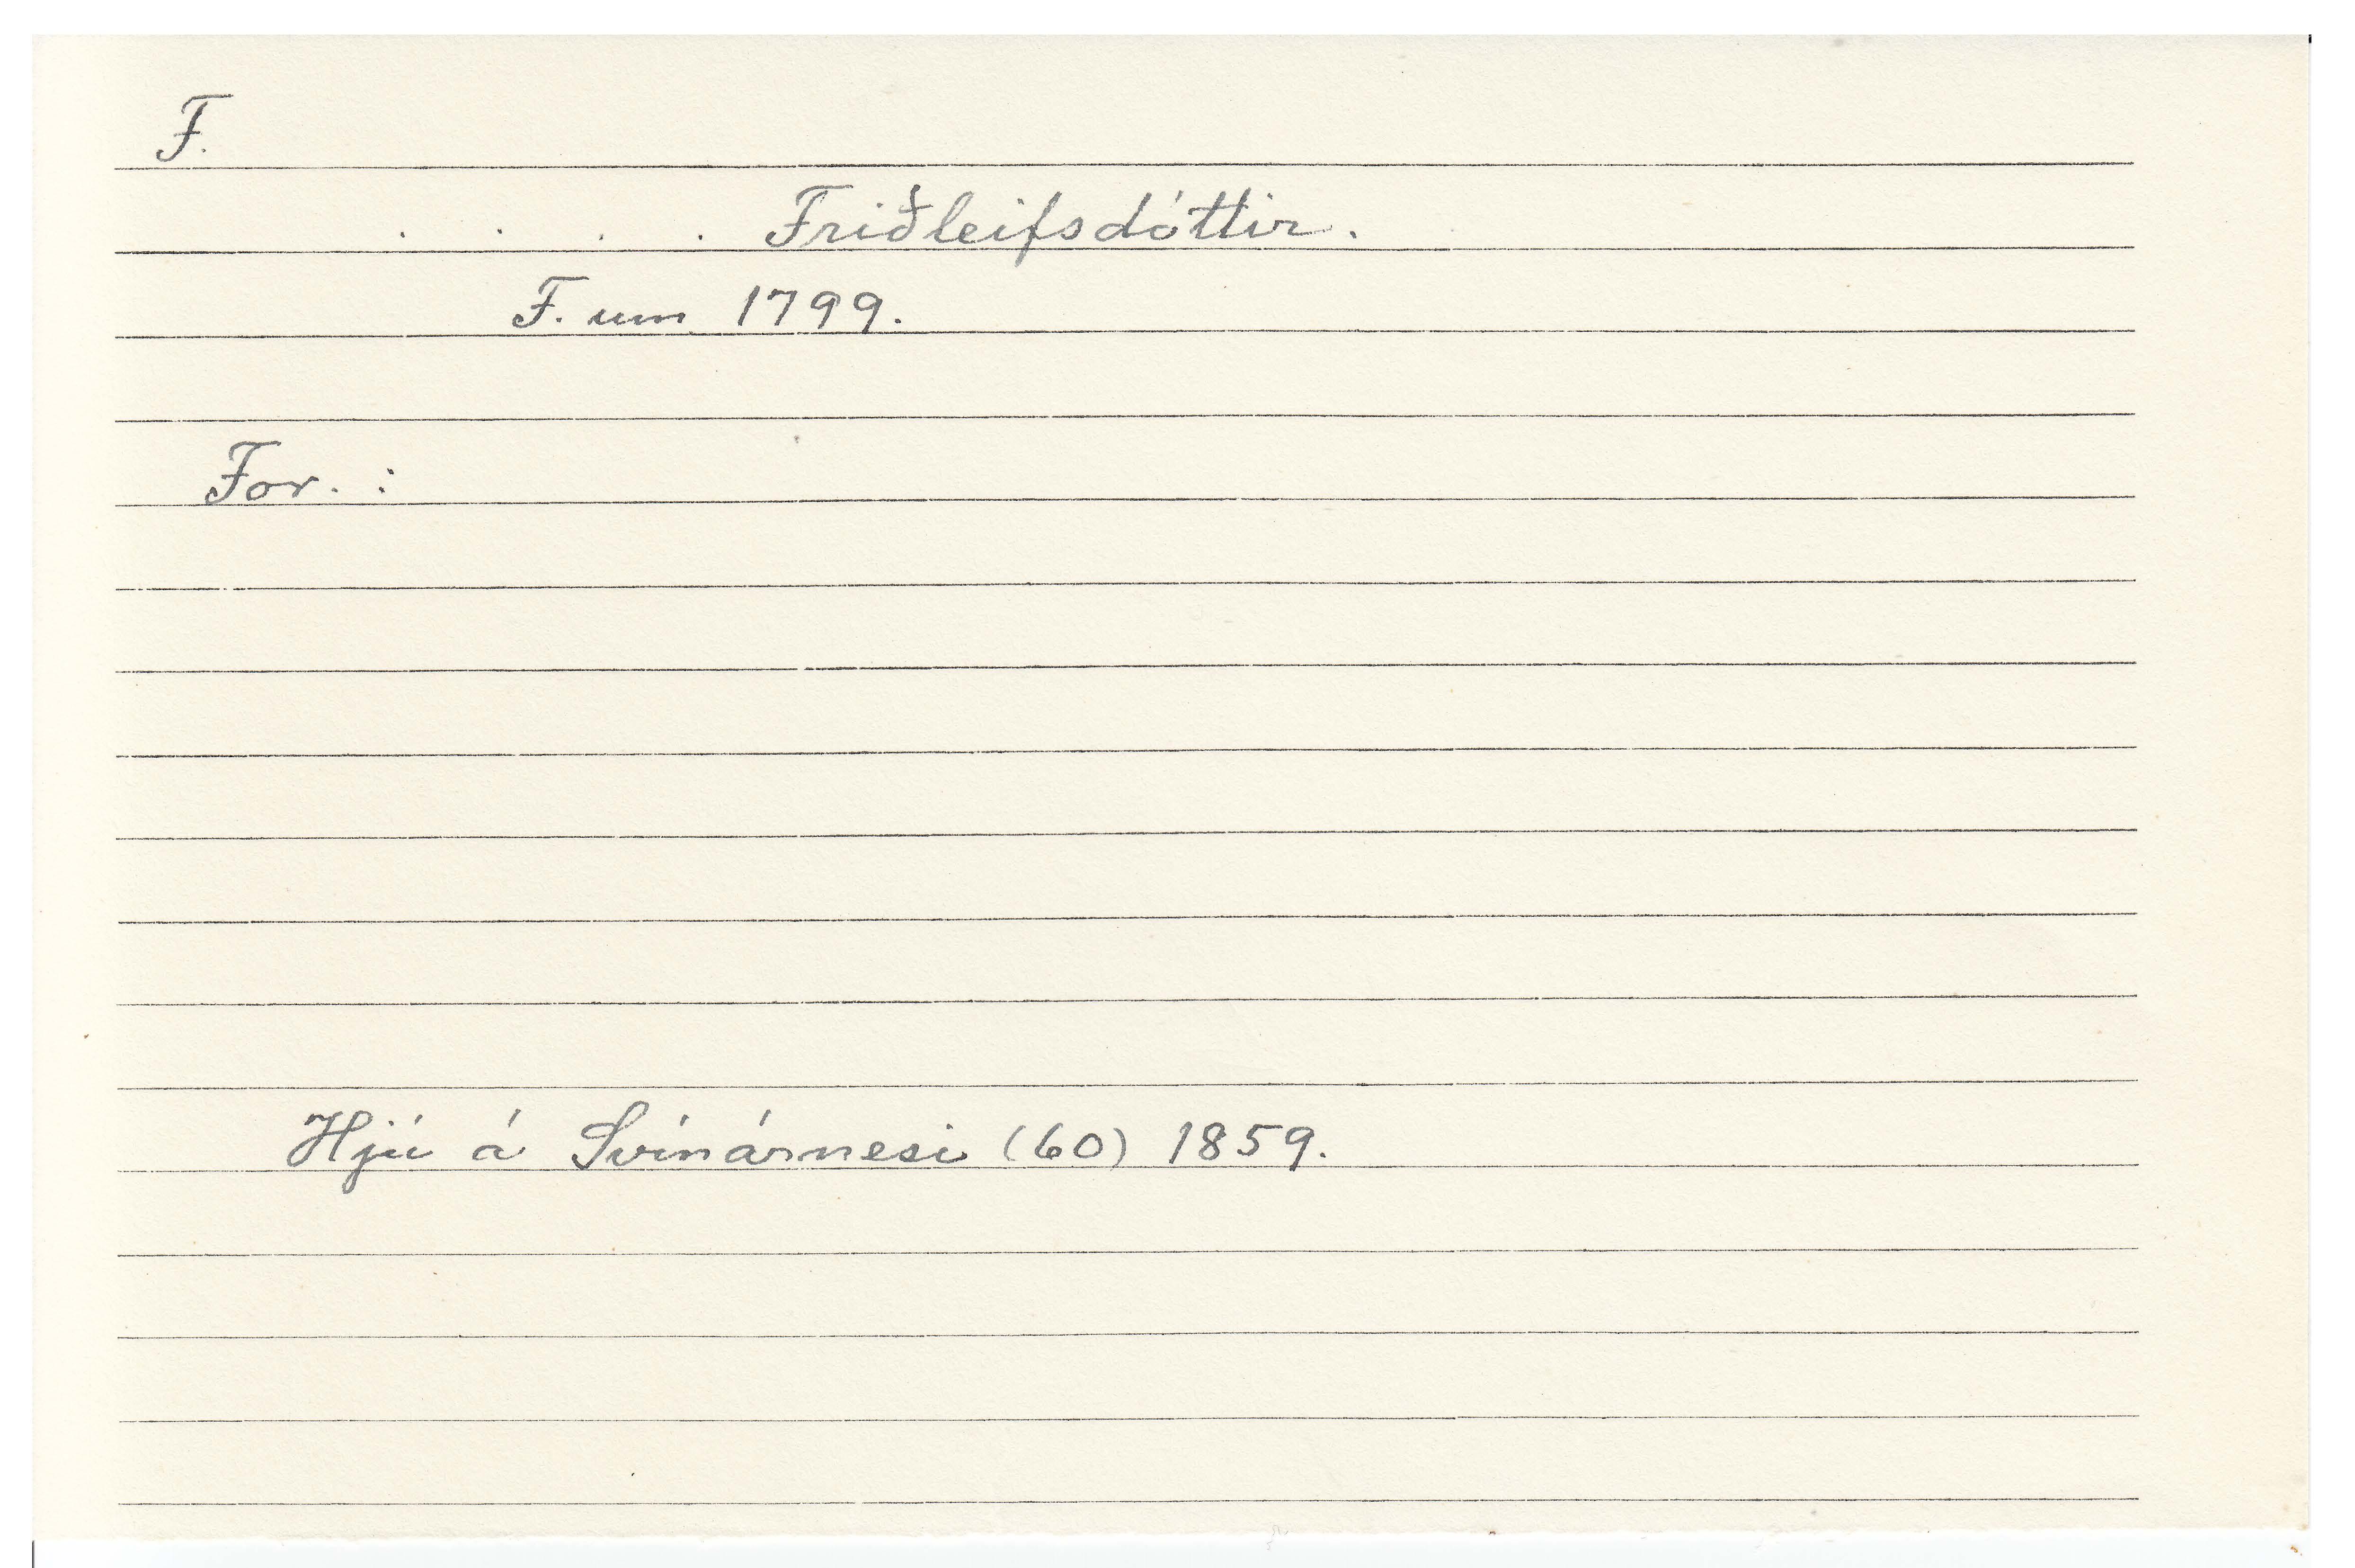 F.
. . . . Friðleifsdóttir.
F. um 1799.
For. :
Hjú á Svínárnesi (60) 1859.